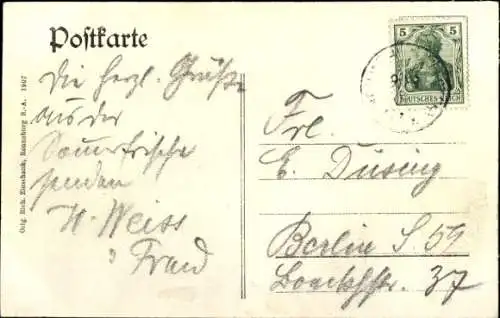 Postkarte
Die herzl. Grüße
aus der
Sommerfrische
senden
H. Weiss
u Frau
Frl.
E. Düsing
Berlin S 59
37
5 5
DEUTSCHES REICH
Orig. Rich. Zieschank, Ronneburg S.-A. 1907